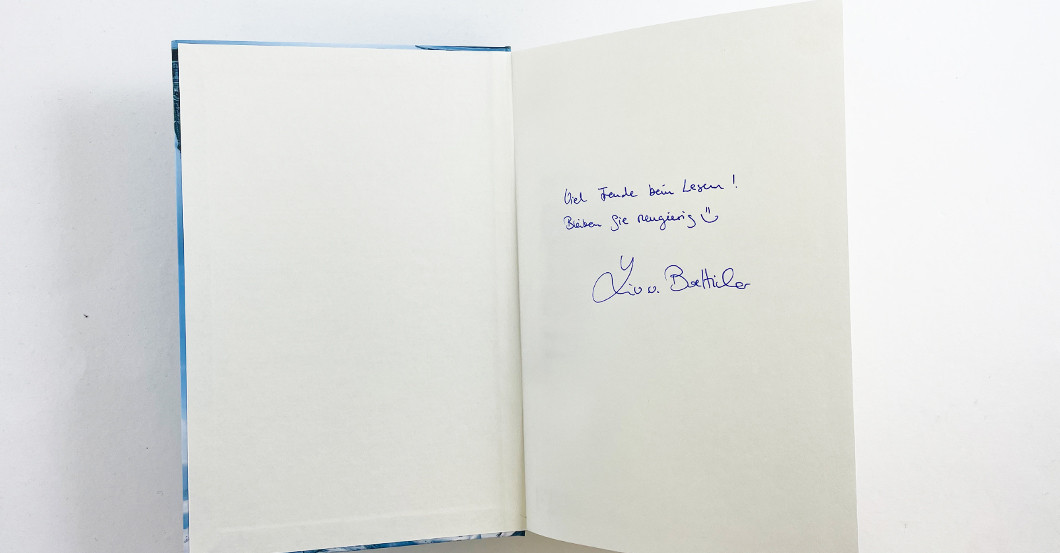 Viel Freude beim Lesen!
Bleiben Sie neugierig
Liv v. Boetticher